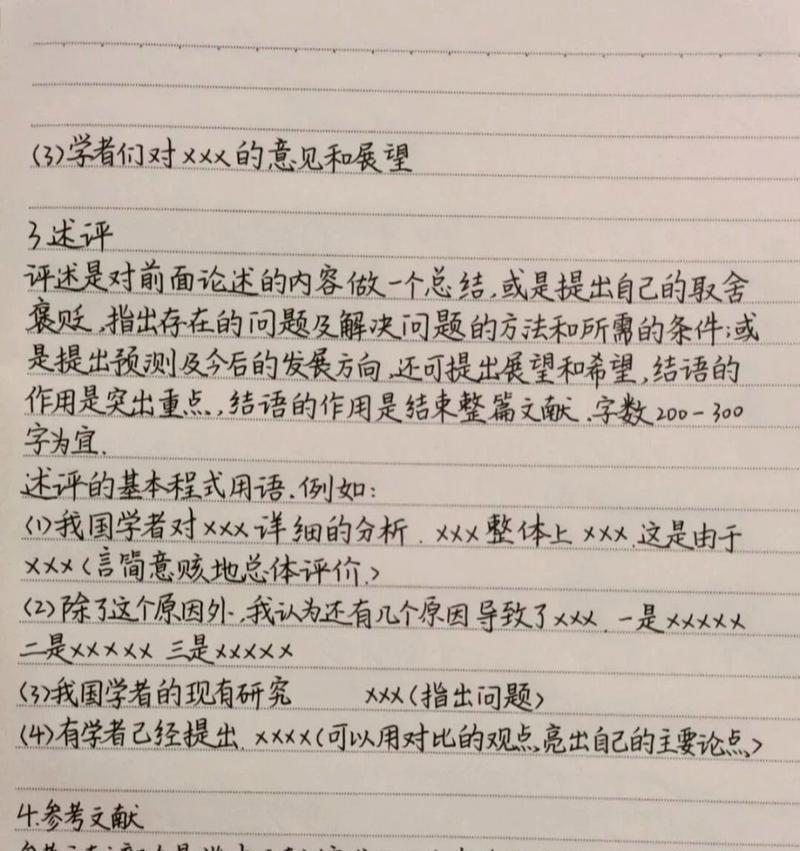 (3)学者们对xxx的意见和展望
3述评
评述是对前面论述的内容做一个总结,或是提出自己的取舍
褒贬,指出存在的问题及解决问题的方法和所需的条件;或
是提出预测及今后的发展方向,还可提出展望和希望,结语的
作用是突出重点,结语的作用是结束整篇文献.字数200-300
字为宜.
述评的基本程式用语.例如:
(1)我国学者对xxx详细的分析.xxx整体上xxx.这是由于
xxx(言简意赅地总体评价.)
(2)除了这个原因外,我认为还有几个原因导致了xxx.一是xxxxx
二是xxxxx 三是xxxxx
(3)我国学者的现有研究 xxx(指出问题)
(4)有学者已经提出.xxxx(可以用对比的观点,亮出自己的主要论点,)
4.参考文献